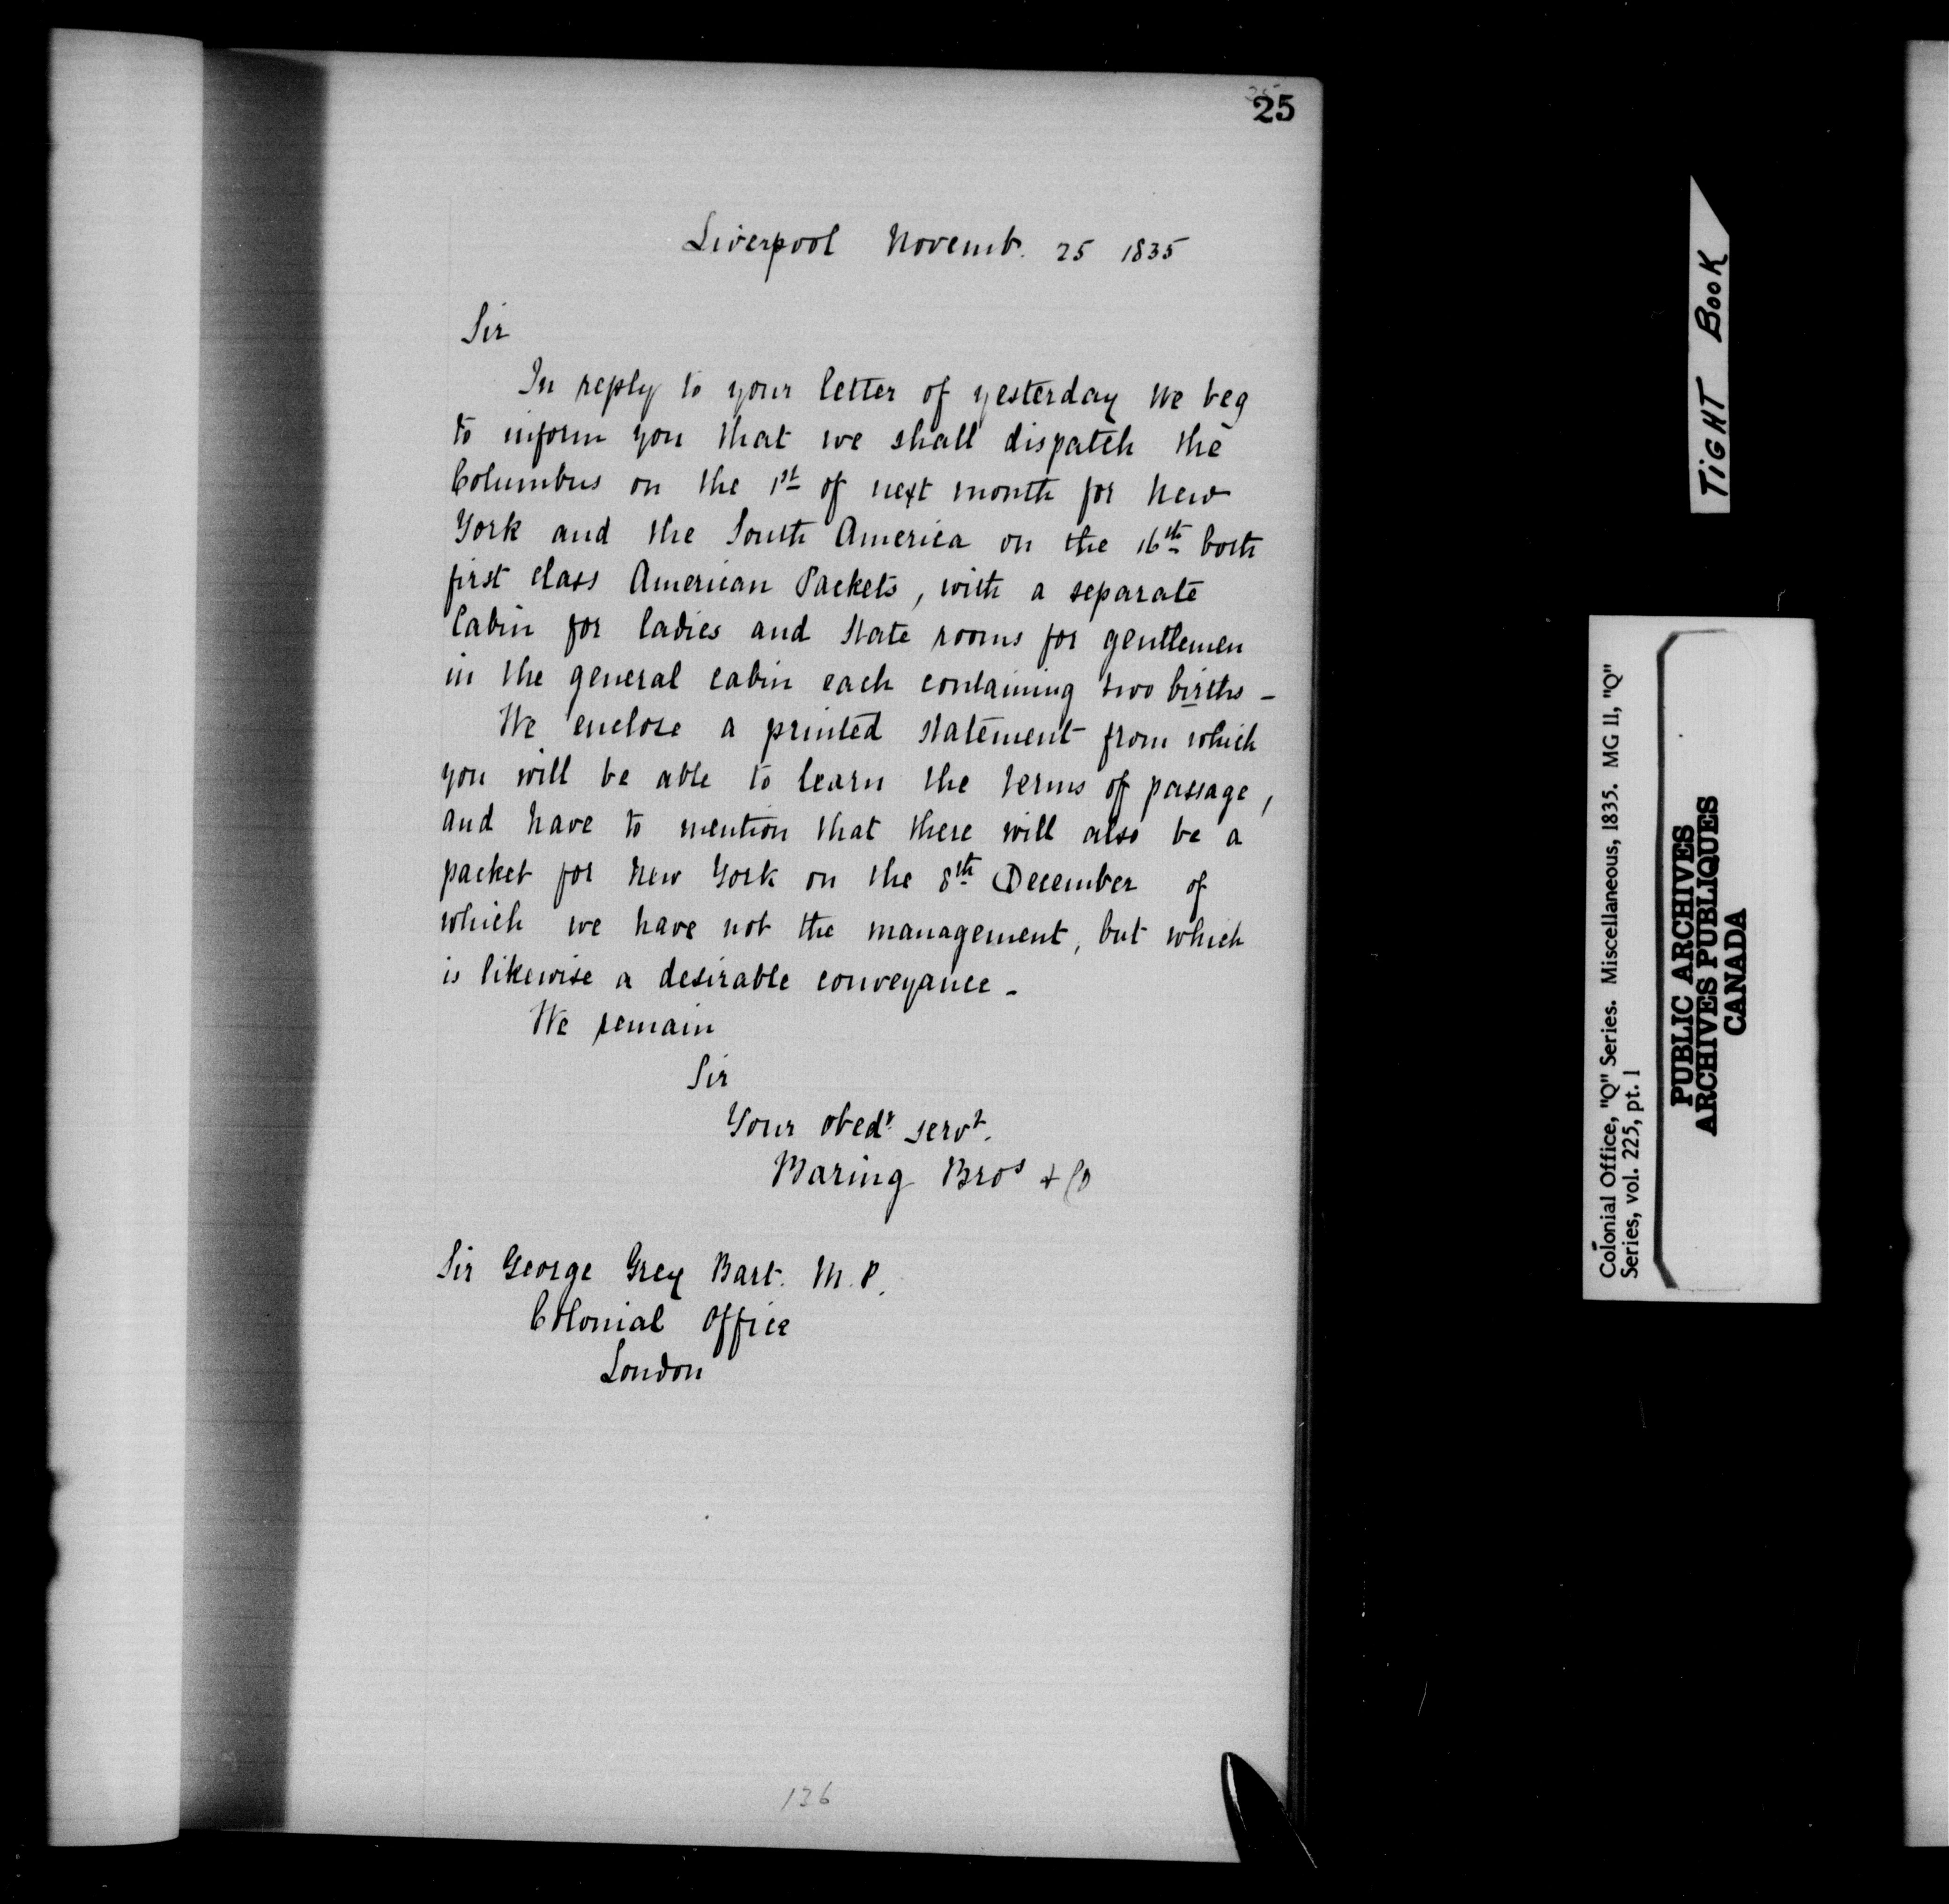 25
Liverpool Novemb. 25 1835
Sir
In reply to your letter of yesterday we beg
to inform you that we shall dispatch the
Columbus on the 1st of next month for New
York and the South America on the 16th both
first class American Packets, with a separate
Cabin for ladies and state rooms for gentlemen
in the general cabin each containing two births -
We enclose a printed statement from which
you will be able to learn the terms of passage,
and have to mention that there will also be a
packet for New York on the 8th December of
which we have not the management, but which
is likewise a desirable conveyance -
We remain
Sir
Your obedt. servt.
Baring Bros & Co
Sir George Grey Bart. M.P.
Colonial Office
London
136
TIGHT BOOK
Colonial Office, "Q" Series. Miscellaneous, 1835. MG 11, "Q"
Series, vol. 225, pt. 1
PUBLIC ARCHIVES
ARCHIVES PUBLIQUES
CANADA